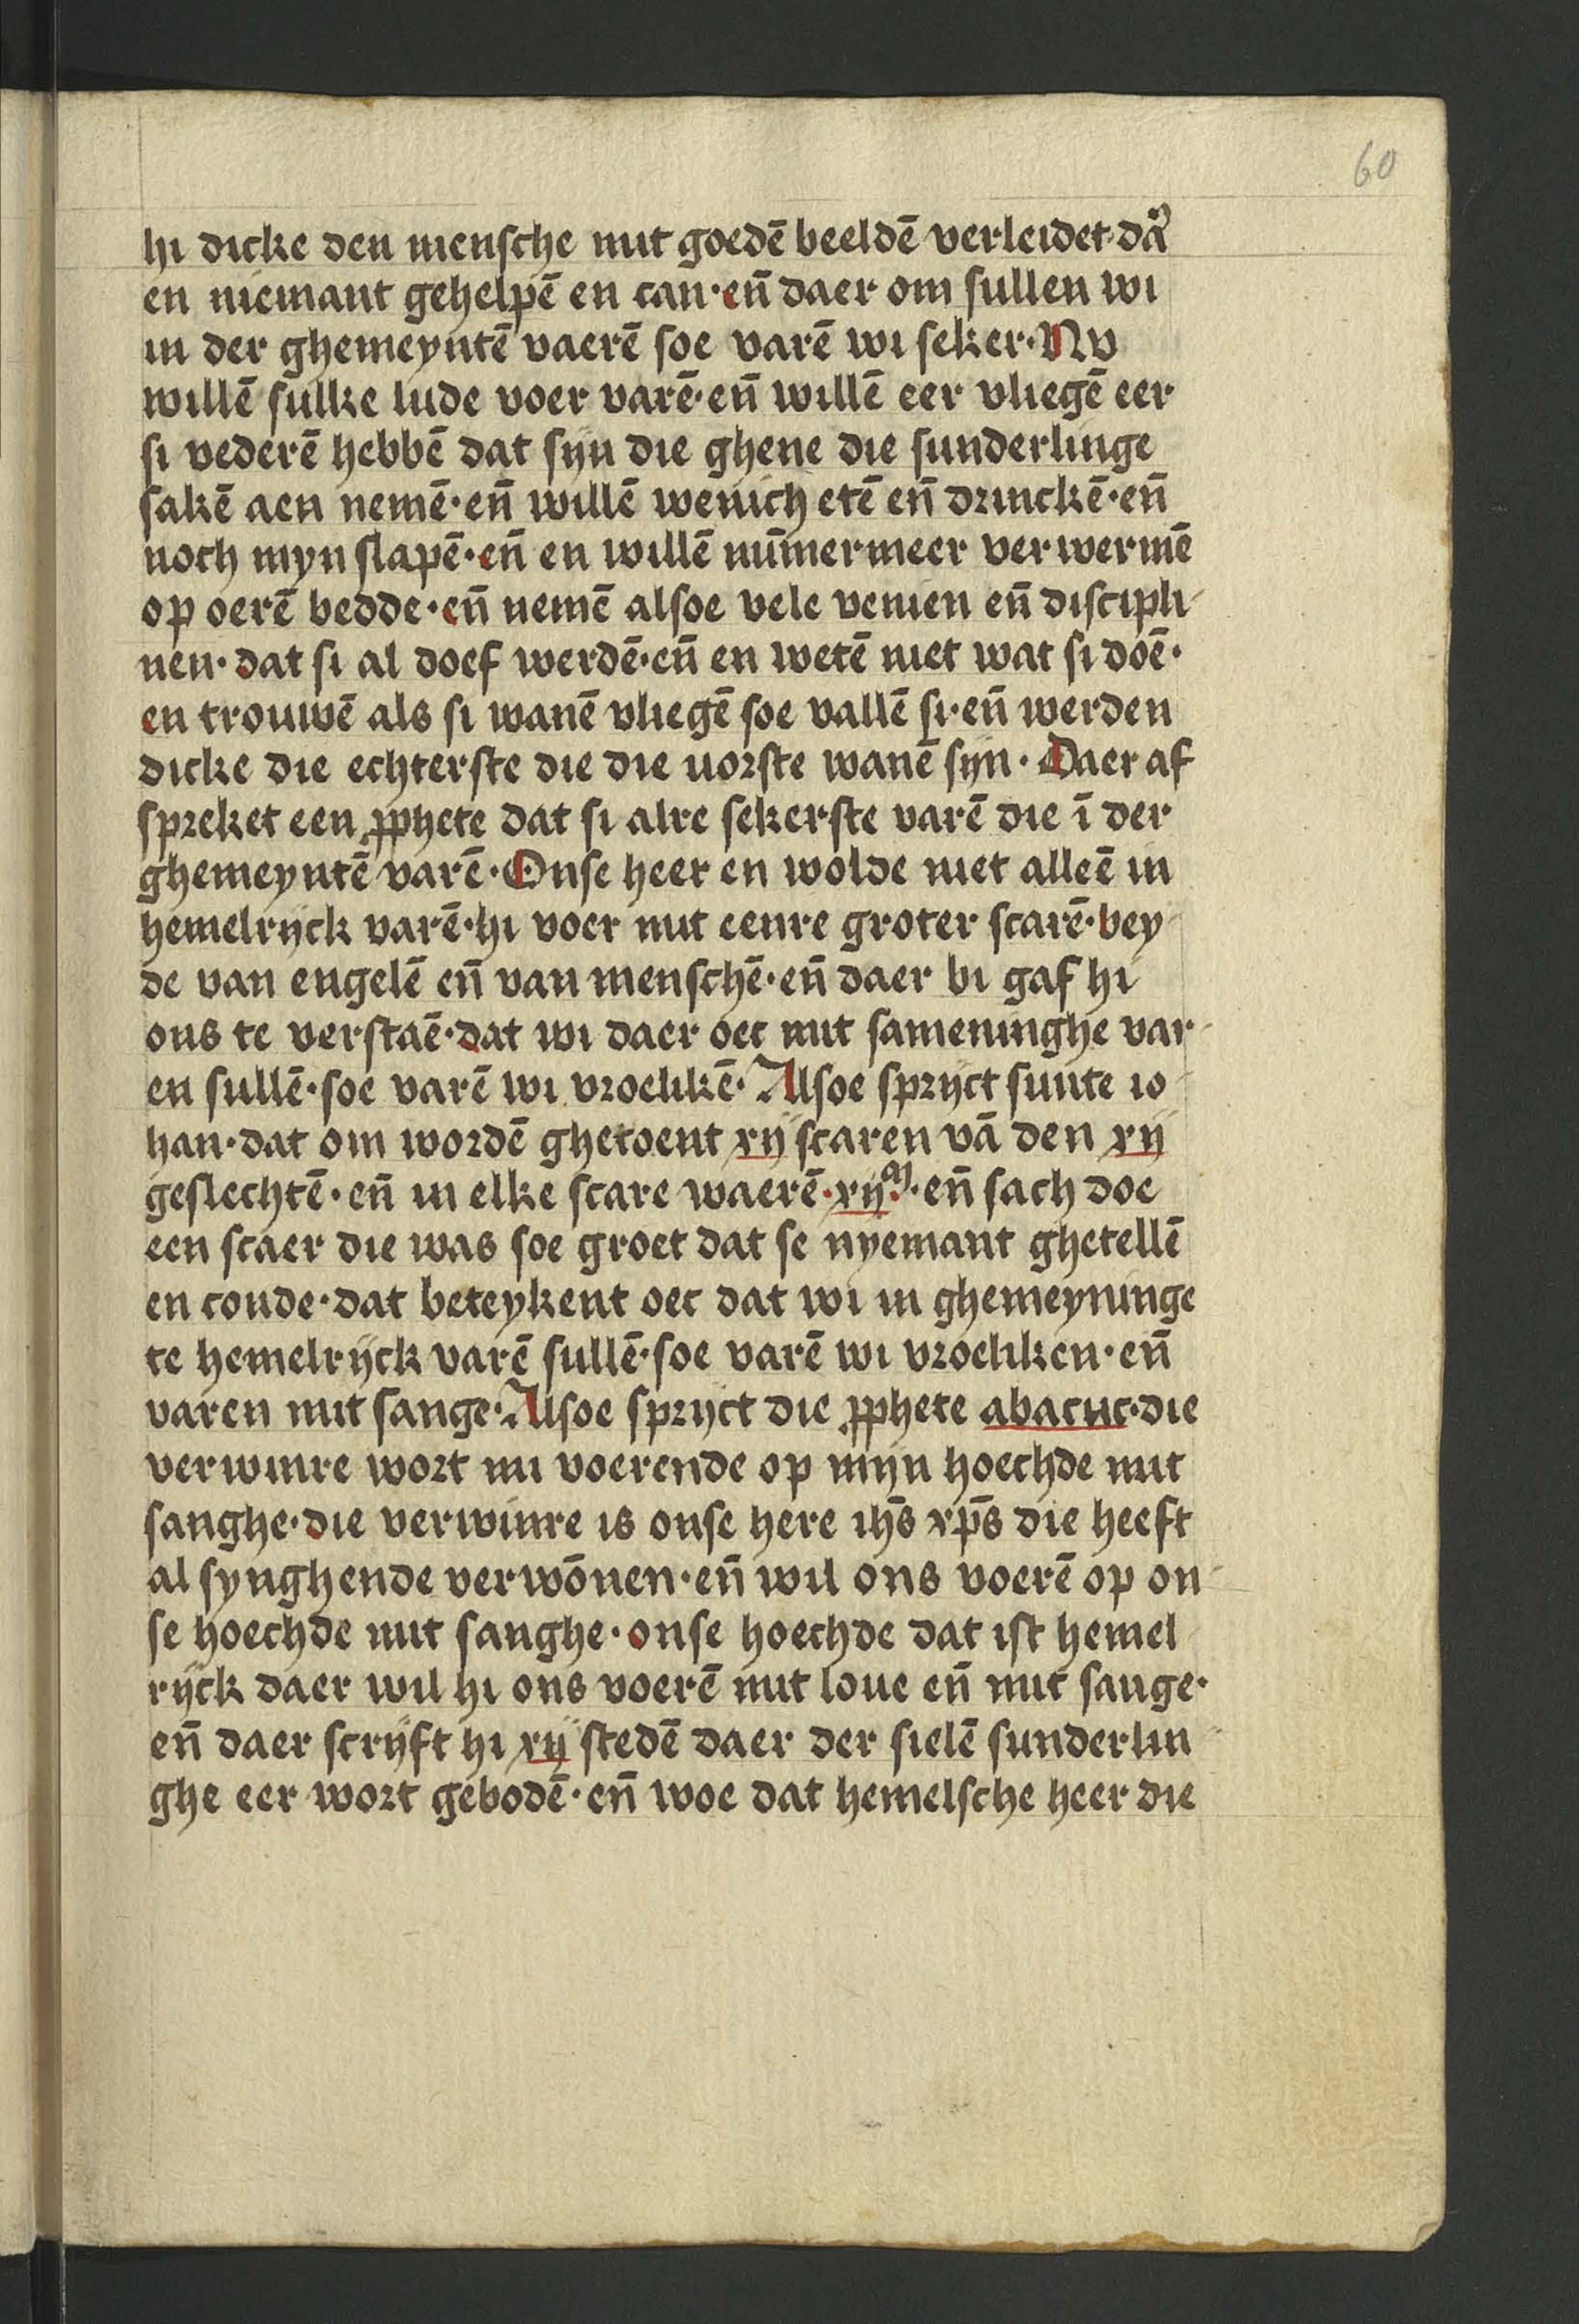 60
hi dicke den mensche mit goedē beeldē verleidet·dā
en niemant gehelpē en can·en̄ daer om sullen wi
in der ghemeyntē vaerē soe varē wi seker·Nv
willē sulke lude voer varē·en̄ willē eer vliegē eer
si vederē hebbē dat sijn die ghene die sunderlinge
sakē aen nemē·en̄ willē wenich etē en̄ drinckē·en̄
noch myn slapē·en̄ en willē nūmermeer verwermē
op oerē bedde·en̄ nemē alsoe vele venien en̄ discipli-
nen·dat si al doef werdē·en̄ en wetē niet wat si doē·
en trouwē als si wanē vliegē soe vallē si·en̄ werden
dicke die echterste die die uorste wanē sijn·Daer af
spreket een ꝓphete dat si alre sekerste varē die ī der
ghemeyntē varē·Onse heer en wolde niet alleē in
hemelrijck varē·hi voer mit eenre groter scarē·bey-
de van engelē en̄ van menschē·en̄ daer bi gaf hi
ons te verstaē·dat wi daer oec mit sameninghe var-
en sullē·soe varē wi vroelikē·Alsoe sprijct sunte io-
han·dat om wordē ghetoent xij scaren vā den xij
geslechtē·en̄ in elke scare waerē·xijᵐ·en̄ sach doe
een scaer die was soe groet dat se nyemant ghetellē
en conde·dat beteykent oec dat wi in ghemeyninge
te hemelrijck varē sullē·soe varē wi vroeliken·en̄
varen mit sange·Alsoe sprijct die ꝓphete abacuc·die
verwinre wort mi voerende op mijn hoechde mit
sanghe·die verwinre is onse here ihs̄ xp̄s die heeft
al synghende verwōnen·en̄ wil ons voerē op on-
se hoechde mit sanghe·onse hoechde dat ist hemel-
rijck daer wil hi ons voerē mit loue en̄ mit sange·
en̄ daer scrijft hi xij stedē daer der sielē sunderlin-
ghe eer wort gebodē·en̄ woe dat hemelsche heer die